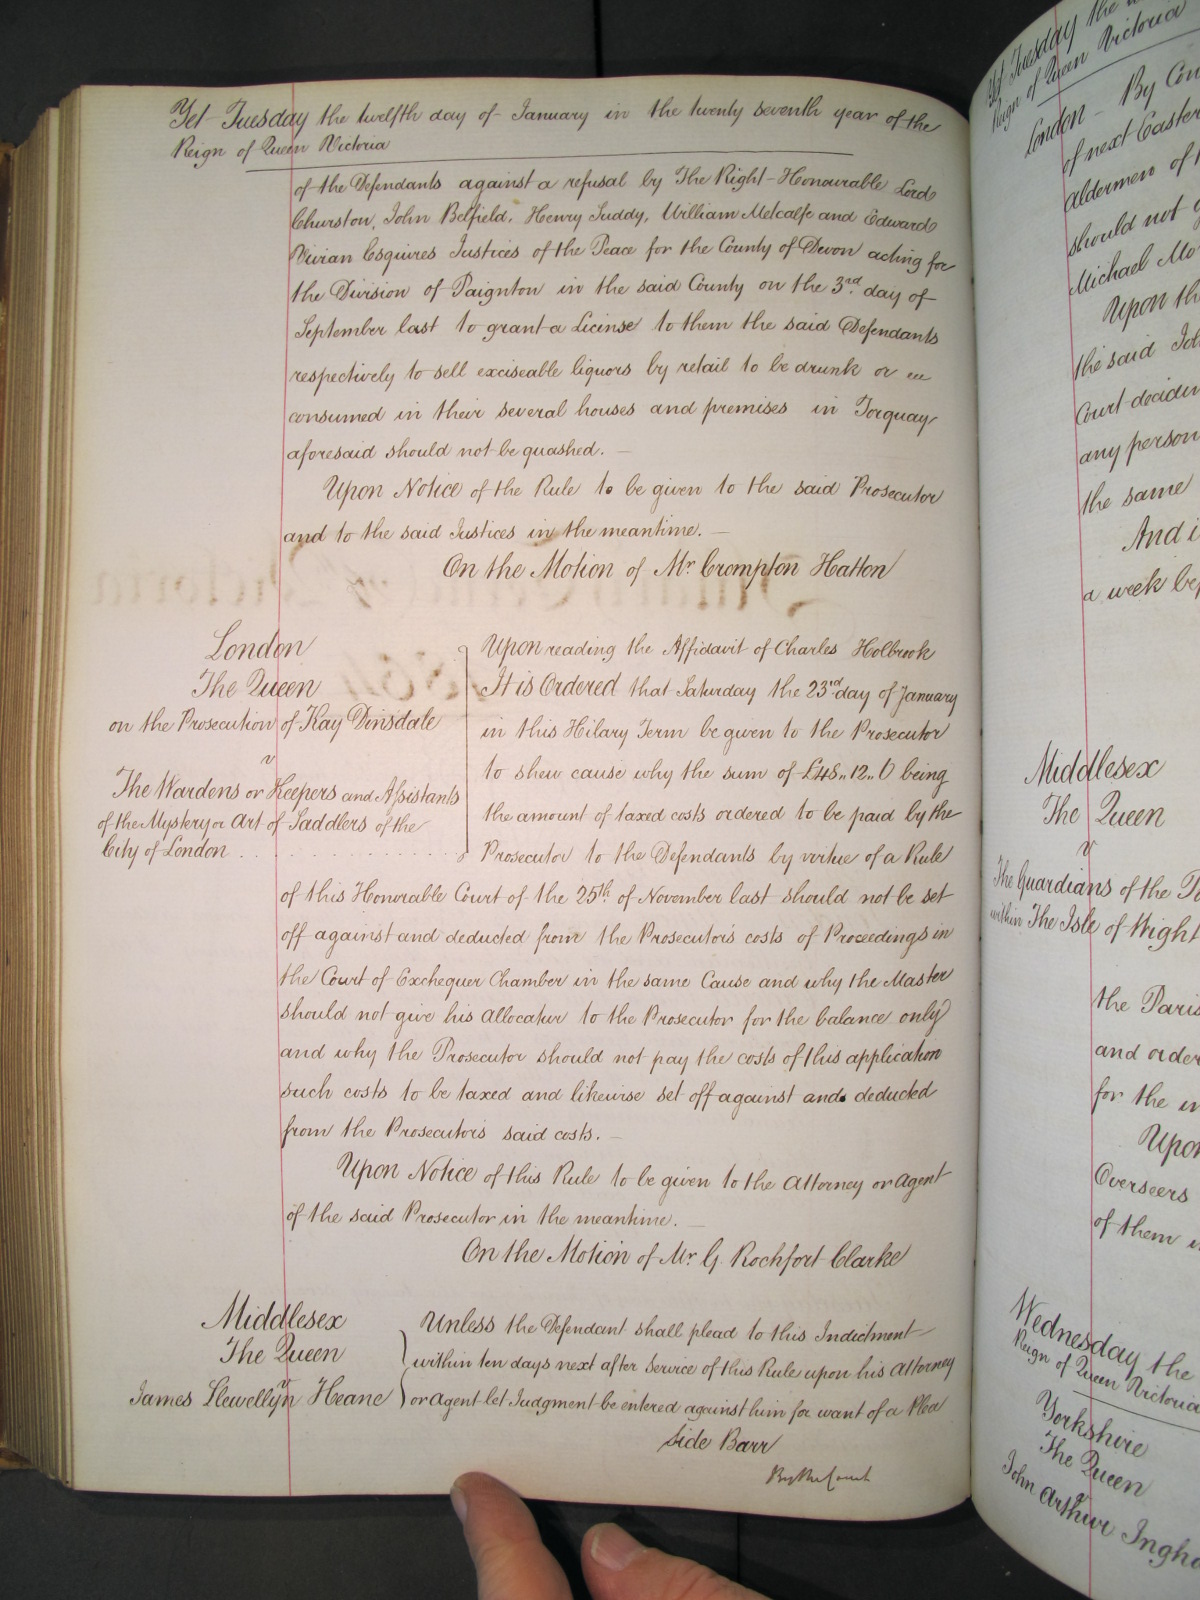 Yet Tuesday the twelfth day of January in the twenty seventh year of the
Reign of Queen Victoria
of the Defendants against a refusal by The Right Honourable Lord
Churston, John Belfield, Henry Tuddy, William Metcalfe and Edward
Vivian Esquires Justices of the Peace for the County of Devon acting for
the Division of Paignton in the said County on the 3rd. day of
September last to grant a License to them the said Defendants
respectively to sell exciseable liquors by retail to be drunk or
consumed in their several houses and premises in Torquay
aforesaid should not be quashed. —
Upon Notice of the Rule to be given to the said Prosecutor
and to the said Justices in the meantime. —
On the Motion of Mr. Crompton Hatton
London
The Queen
on the Prosecution of Kay Dinsdale
v
The Wardens or Keepers and Assistants
of the Mystery or Art of Saddlers of the
City of London . . . . . . . . . . . .
Upon reading the Affidavit of Charles Holbrook
It is Ordered that Saturday the 23rd day of January
in this Hilary Term be given to the Prosecutor
to shew cause why the sum of £48,, 12,, 0 being
the amount of taxed costs ordered to be paid by the
Prosecutor to the Defendants by virtue of a Rule
of this Honorable Court of the 25th of November last should not be set
off against and deducted from the Prosecutors costs of Proceedings in
the Court of Exchequer Chamber in the same Cause and why the Master
should not give his Allocatur to the Prosecutor for the balance only
and why the Prosecutor should not pay the costs of this application
such costs to be taxed and likewise set off against and deducted
from the Prosecutors said costs. —
Upon Notice of this Rule to be given to the Attorney or Agent
of the said Prosecutor in the meantime. —
On the Motion of Mr. G. Rochfort Clarke
Middlesex
The Queen
v
James Llewellyn Heane
Unless the Defendant shall plead to this Indictment
within ten days next after Service of this Rule upon his Attorney
or Agent let Judgment be entered against him for want of a Plea
Side Barr
By the Court
Yet Tuesday the
Reign of Queen Victoria
London By
of next Easter
Aldermen of
should not
Michael
Upon the
the said
Court
any person
the same
And
a week
Middlesex
The Queen
v
The Guardians of the
within The Isle of Wight
the Paris
and order
for the
Upon
Overseers
of them
Wednesday the
Reign of Queen Victoria
Yorkshire
The Queen
v
John Arthur